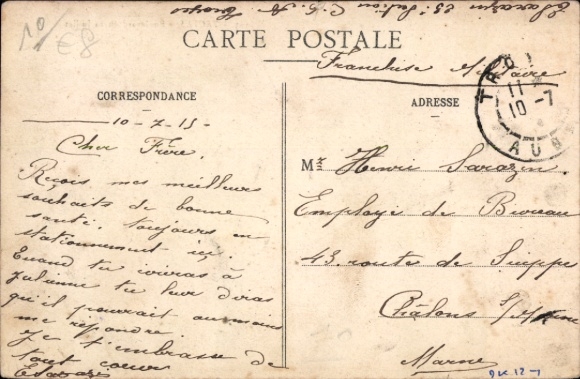 10/
E8
Sarazin 25e Section C.O.A. Troyes
CARTE POSTALE
Franchise Militaire
CORRESPONDANCE
ADRESSE
TRO
11
10 - 7
AUB
10-7-15-
Cher Frère,
Reçois mes meilleurs
souhaits de bonne
santé. toujours en
stationnement ici.
Quand tu écriras à
Julienne tu leur diras
qu'il pourrait au moins
me répondre.
je t'embrasse de
tout coeur
Mr Henri Sarazin.
Employé de Bureau
43. route de Suippe
Châlons s/Marne
Marne